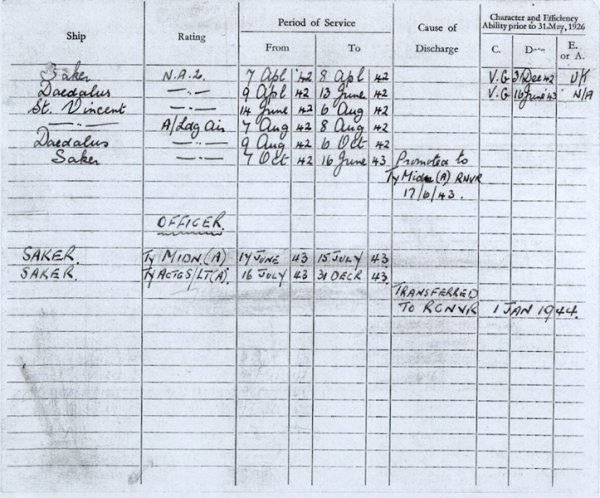 Ship Rating Period of Service Cause of Discharge Character and Efficiency Ability prior to 31.May, 1926
From To C. D— E. or A.
Saker N.A.2. 7 Apl '42 8 Apl 42 V.G 31 Dec 42 U/K
Daedalus —·— 9 Apl 42 13 June 42 V.G 16 June 43 N/A
St. Vincent —·— 14 June 42 6 Aug 42
—·— A/Ldg Air 7 Aug 42 8 Aug 42
Daedalus —·— 9 Aug 42 6 Oct 42
Saker —·— 7 Oct 42 16 June 43 Promoted to
Ty Midn (A) RNVR
17/6/43.
OFFICER.
SAKER. Ty MIDN.(A) 17 JUNE 43 15 JULY 43
SAKER. Ty ACTG S/LT(A). 16 JULY 43 31 DECR 43.
TRANSFERRED
TO RCNVR 1 JAN 1944.